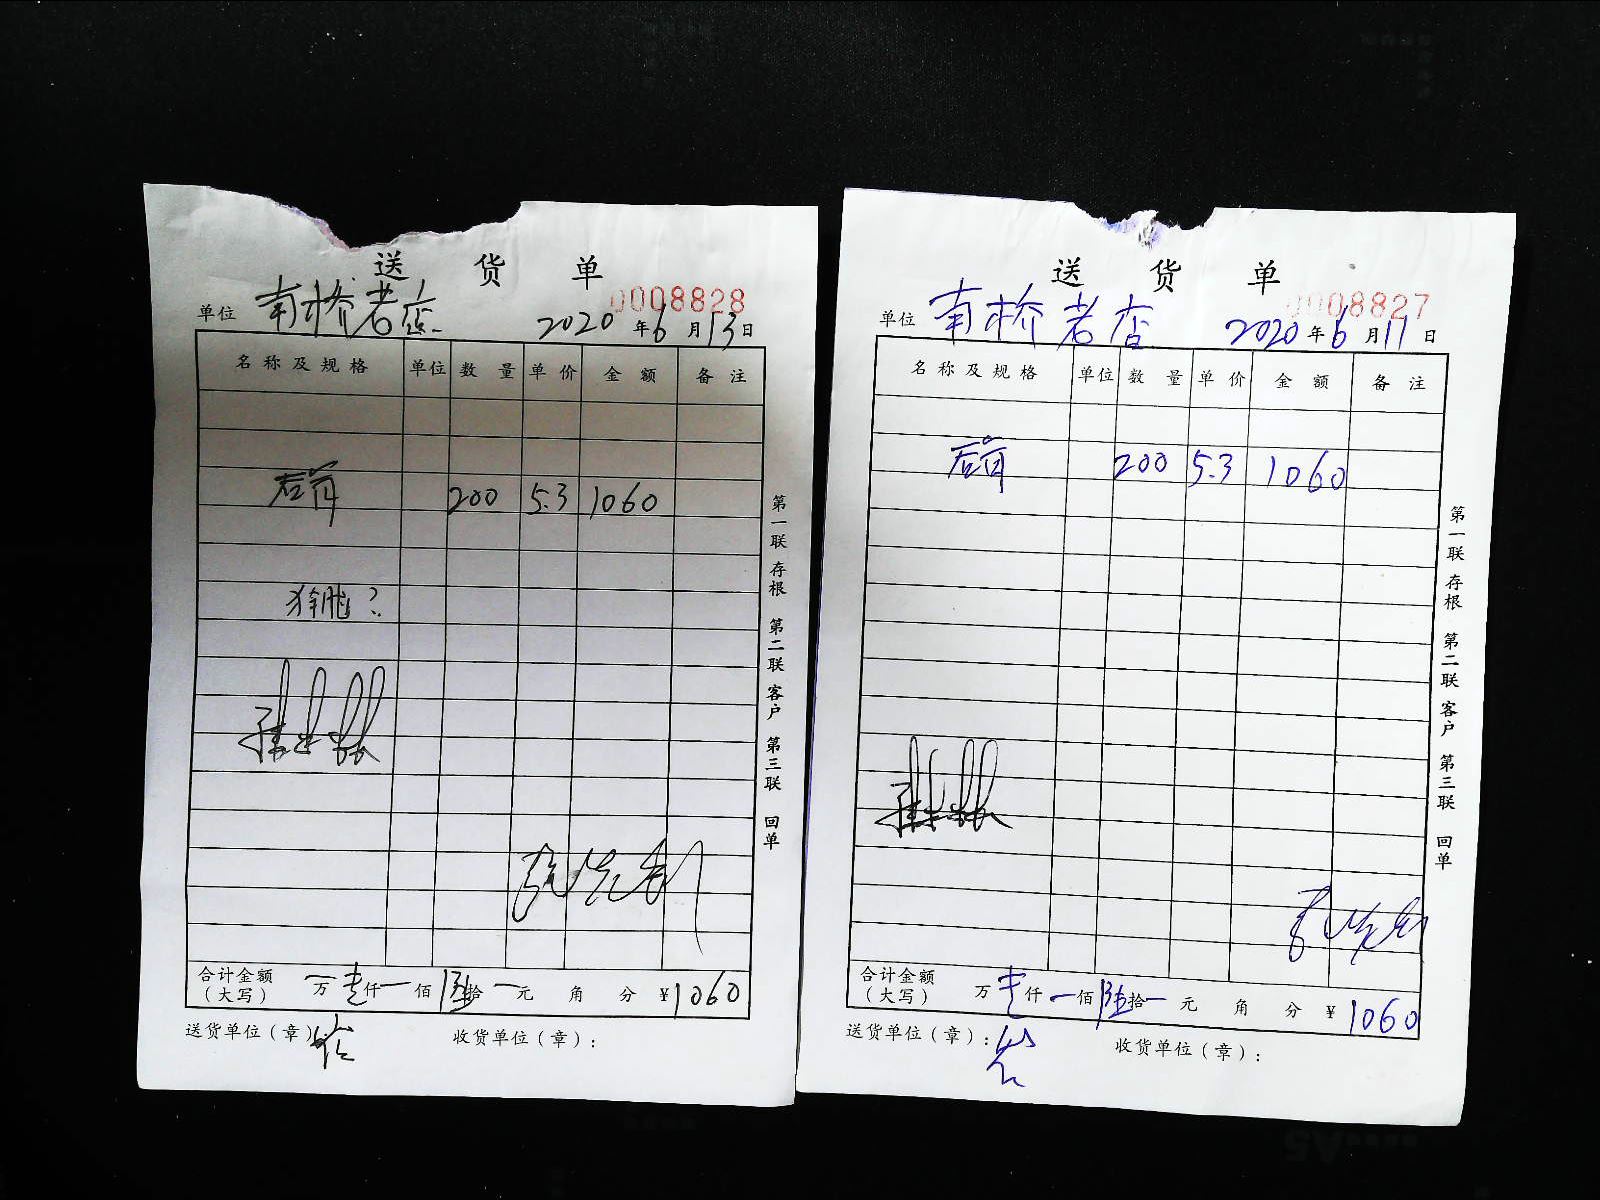 送 货 单
0008828
单位 南桥老店 2020年6月13日
名称及规格 单位 数量 单价 金额 备注
200 5.3 1060
?
第一联 存根 第二联 客户 第三联 回单
合计金额（大写） 一万壹仟一佰陆拾一元 角 分 ¥1060
送货单位（章）: 收货单位（章）:
送 货 单
0008827
单位 南桥老店 2020年6月11日
名称及规格 单位 数量 单价 金额 备注
200 5.3 1060
第一联 存根 第二联 客户 第三联 回单
合计金额（大写） 万壹仟一佰陆拾一元 角 分 ¥1060
送货单位（章）: 收货单位（章）: